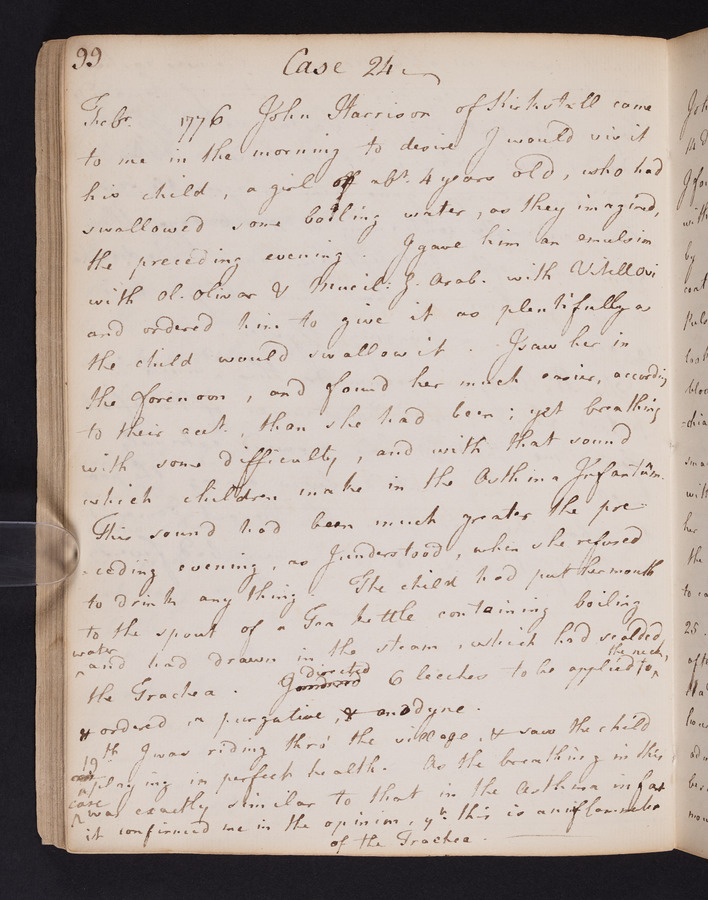 99
Case 24
Febr. 1776 John Harrison of Kirkstall came
to me in the morning to desire I would visit
his child, a girl of abt. 4 years old, who had
swallowed some boiling water, as they imagined,
the preceding evening. I gave him an emulsion
with ol. olivar & Mucil: G. Arab. with Vitell ovi
and ordered him to give it as plentifully as
the child would swallow it. I saw her in
the forenoon, and found her much easier, according
to their acct. than she had been; yet breathing
with some difficulty, and with that sound
which children make in the Asthma Infantum.
This sound had been much greater the pre-
-ceding evening, as I understood, when she refused
to drink any thing. The child had put her mouth
to the spout of a Tea kettle containing boiling
water and had drawn in the steam, which had scalded
the Trachea. I directed 6 leeches to be applied to the neck,
& ordered a purgative, & anodyne.
19th I was riding thro' the village, & saw the child
playing in perfect health. As the breathing in this
case was exactly similar to that in the Asthma infant
it confirmed me in the opinion, yt. this is an inflammatio
of the Trachea.
Joh
14
I fou
with
by
cont
Puls
bloo
sma
with
her
the
25.
aft